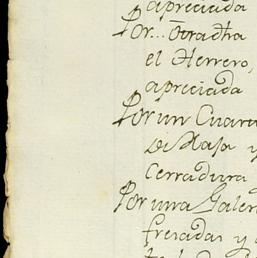 apreciada
Por... otra dha
el Herrero,
apreciada
Por un Cuar
Cerradura
Por una Galer
fresadas y